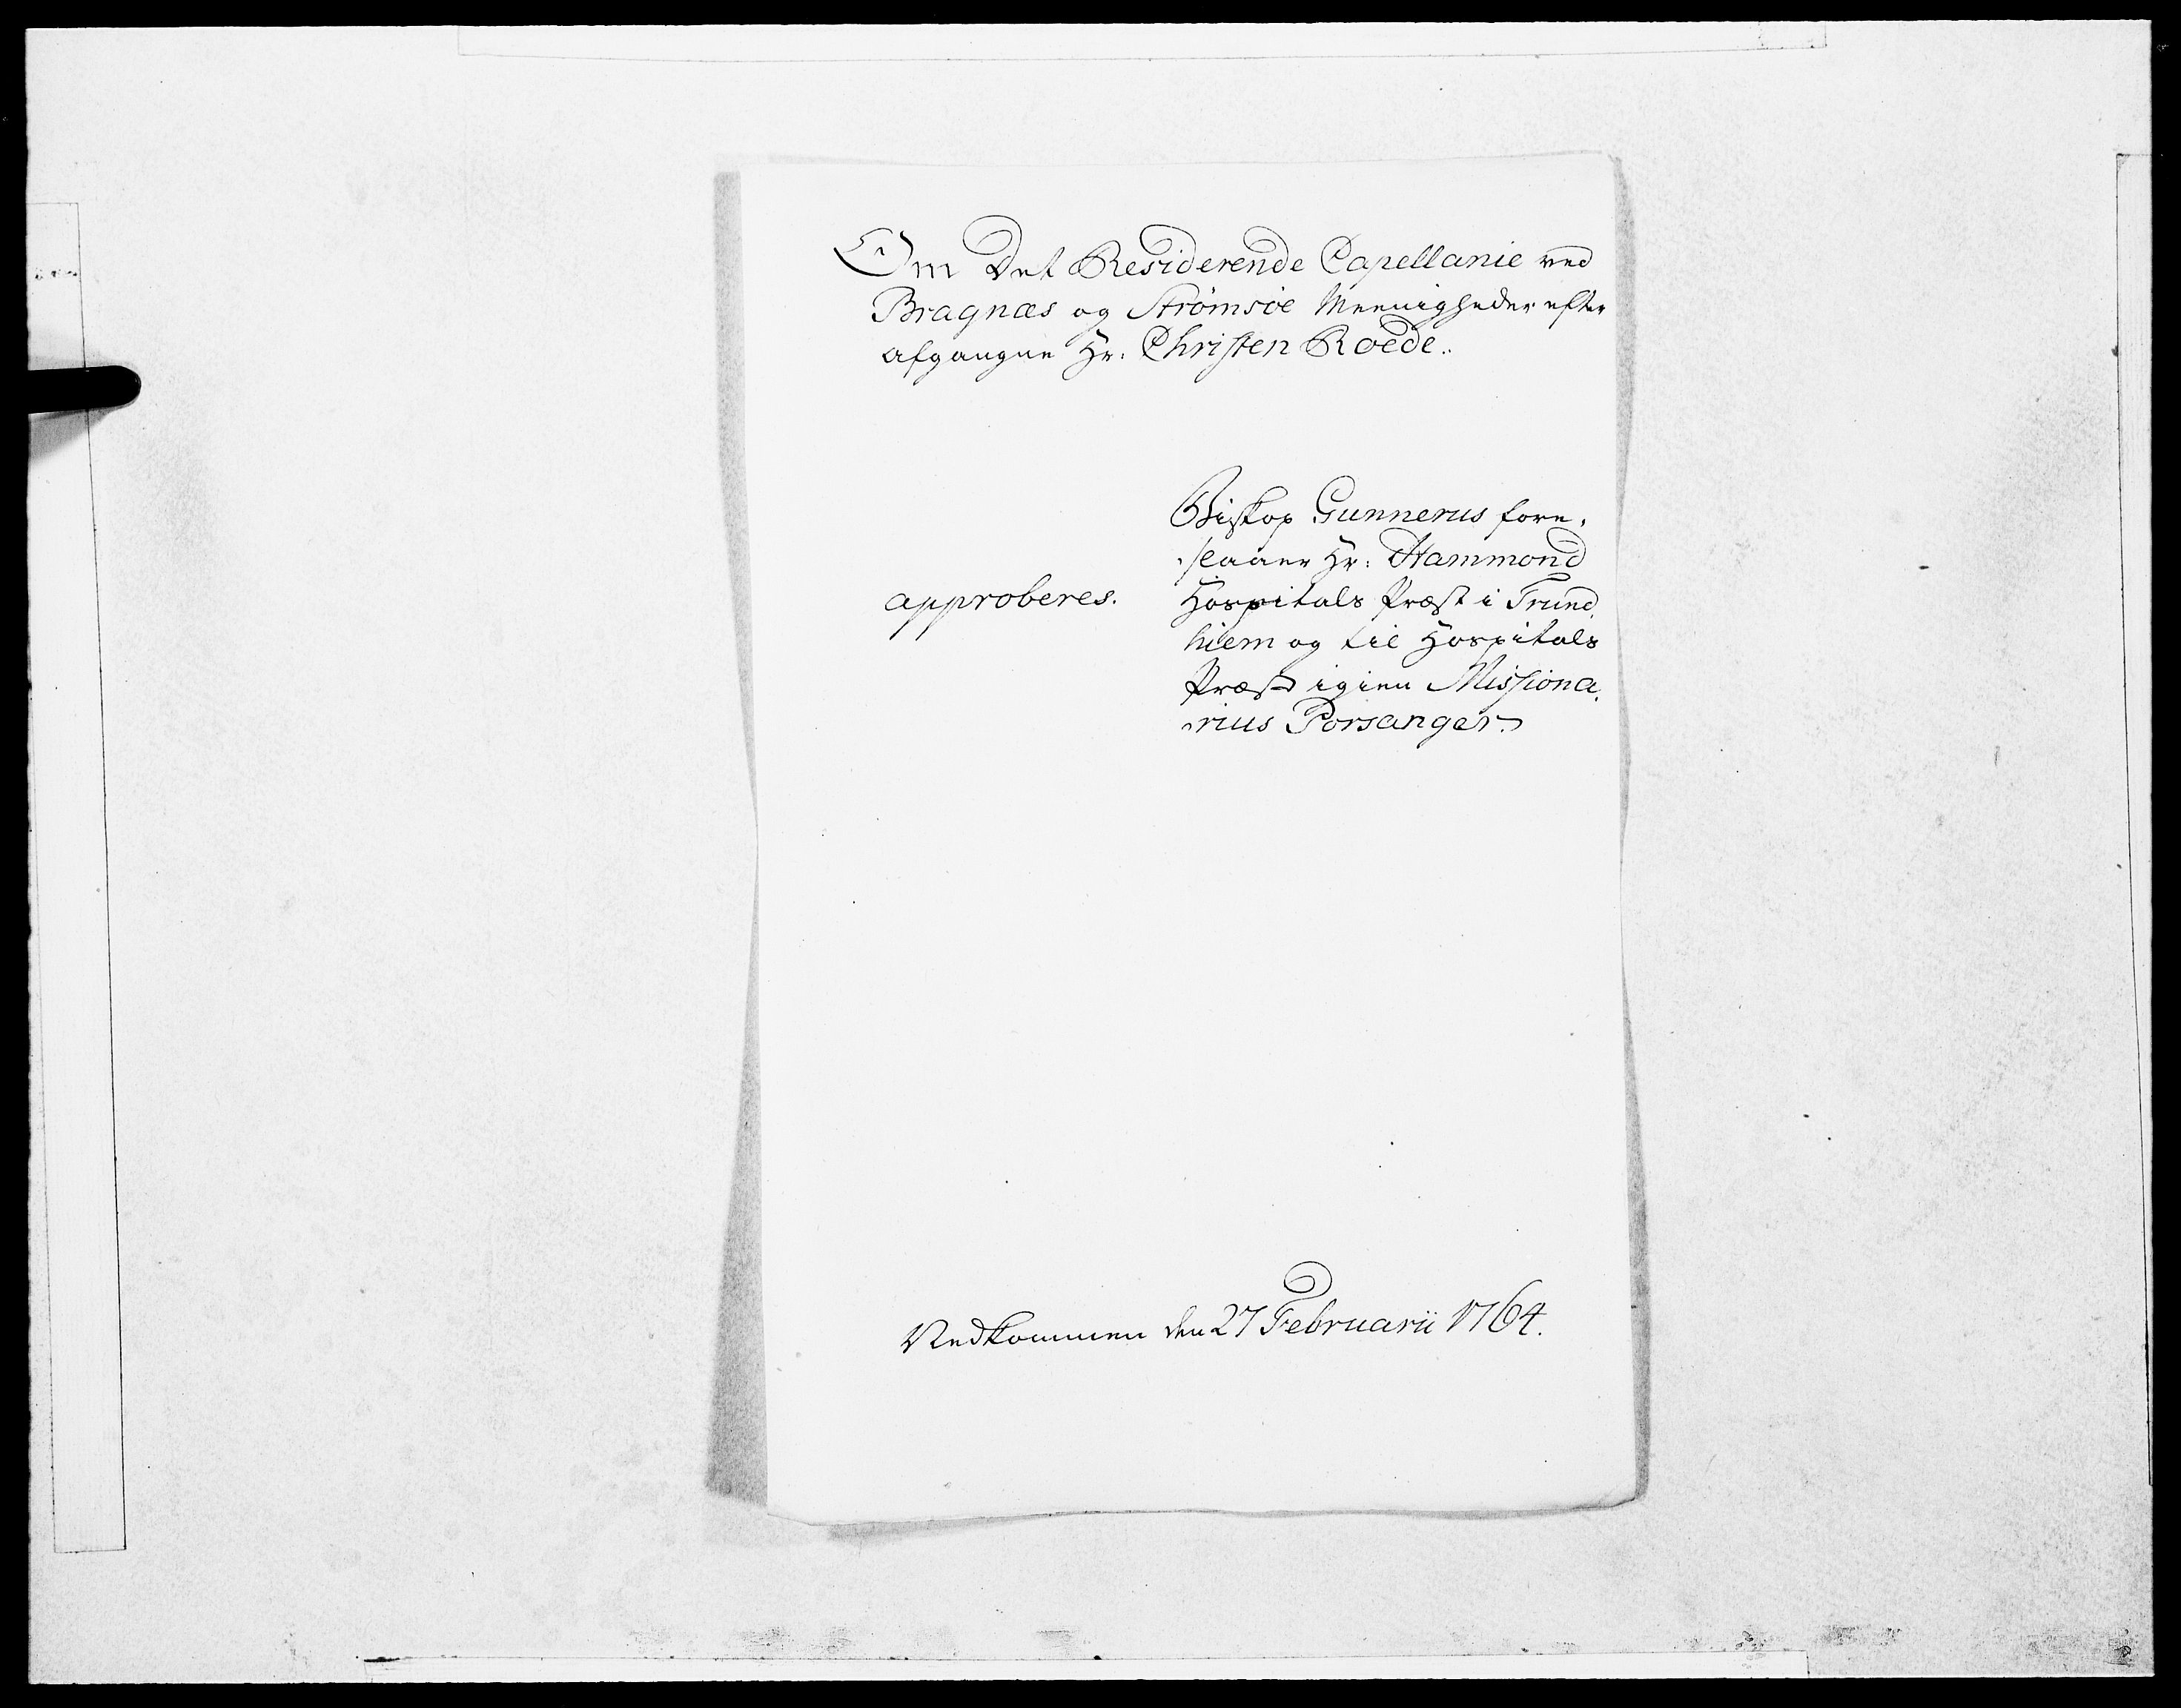 Om Det Residerende Capellanie ved
Bragnæs og Strömsöe Meenigheder efter
afgangne Hr: Christen Roede.
Biskop Gunnerus fore-
-slaaer Hr: Hammond
approberes.
Hospitals Præst i Trund
hiem og til Hospitals
Præst igien Missiona-
-rius Porsanger.
Nedkommen den 27 Februarii 1764.